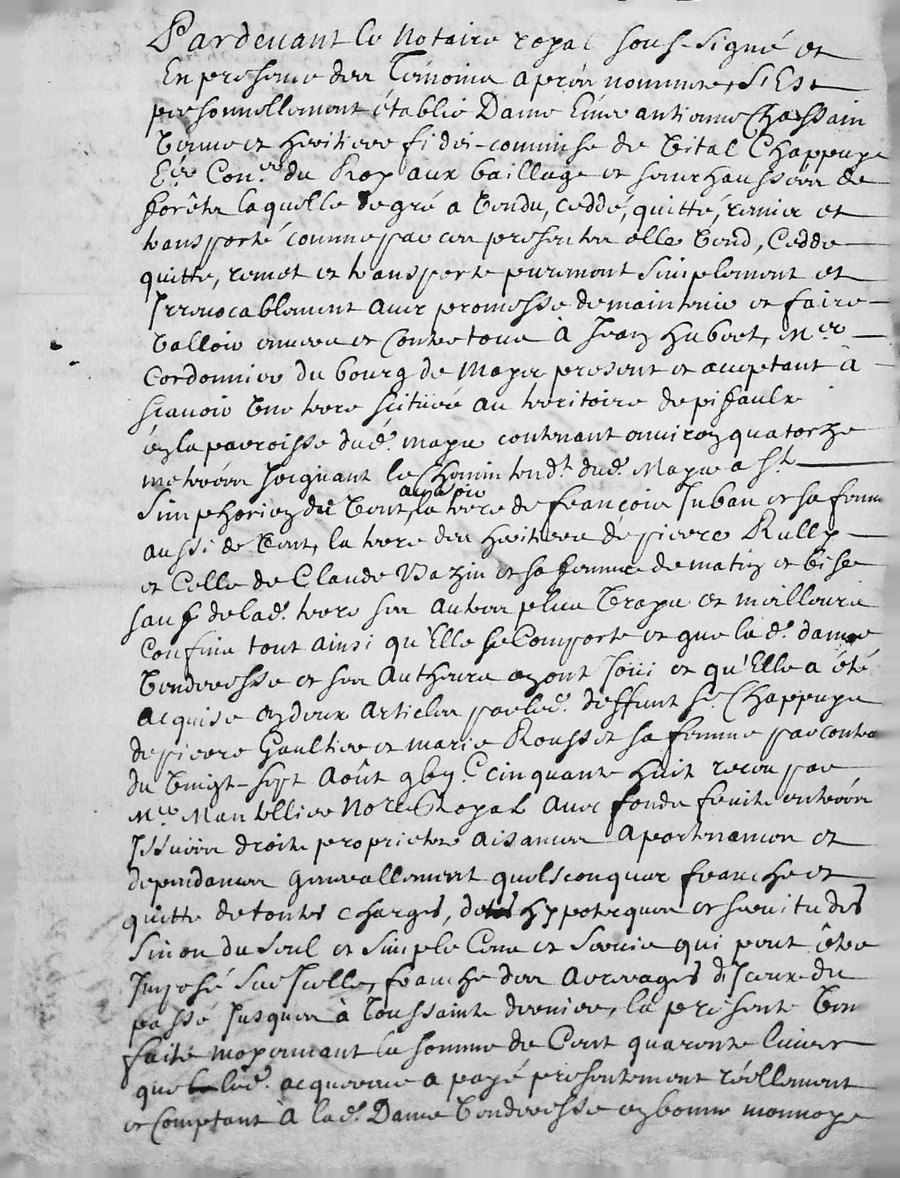 Pardevant le Notaire royal sous-signé et
En presence des Témoins après nommés, S'Est
personnellement établie Dame Eme antienne Chassain
Veuve et heritiere fidei-commise de Vital Chappuys
Er Coner du Roy aux bailliage et senechaussée de
forêts laquelle de gré a Vendu, ceddé, quitté, remis et
transporté comme par ces presentes elle Vend, Cedde
quitte, remet et transporte purement Simplement et
Irrevocablement avec promesse de maintenir et faire
Valloir envers et Contre tous à Jean Hubert, Mtre
Cordonnier du bourg de Mayre present et acceptant à
scavoir Une terre scitüée au territoire de pifaulx
en la parroisse dud. mayre contenant environ quatorze
metérées Joignant le Chemin tendt dud. Mayre a St
Simphorien de Vent, a la terre de françois Juban et sa femme
aussi de Vent, la terre des heritiers de pierre Rully
et Celle de Claude Bazin et sa femme de matin et bise
sauf de lad. terre ses autres plus Vrays et meilleurs
Confins tout ainsi qu'Elle se Comporte et que lad. dame
Venderesse et ses Autheurs en ont Joüi et qu'Elle a été
acquise en deux articles par led. deffunt Sr Chappuys
de pierre Gaultier et marie Rousset sa femme par contrat
du Vingt-sept Août gby.c cinquante huit receu par
Me Mantellier Nore Royal avec fonds fruits entrées
Issües droits proprietés aisances Apartenances et
dependances generallement quelsconques franche et
quitte de toutes charges, dettes hyppoteques et servitudes
Sinon du Seul et Simple Cens et Servis qui peut être
Imposé Sur Icelle, franche des Arrerages d'Iceux du
passé Jusques à Toussaints dernier, la presente Ven
faite moyennant la somme de Cent quarante livres
que led. acquereur a payé presentement réellement
et Comptant à lad. Dame Venderesse en bonne monnoye